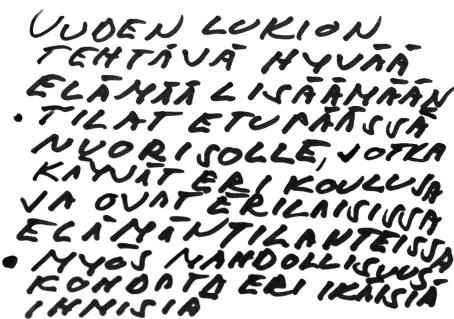 UUDEN LUKION
TEHTÄVÄ HYVÄÄ
ELÄMÄÄ LISÄÄMÄÄN
• TILAT ETUPÄÄSSÄ
NUORISOLLE, JOTKA
KÄYVÄT ERI KOULUJA
JA OVAT ERILAISISSA
ELÄMÄNTILANTEISSA
• MYÖS MAHDOLLISUUS
KOHDATA ERI IKÄISIÄ
IHMISIÄ